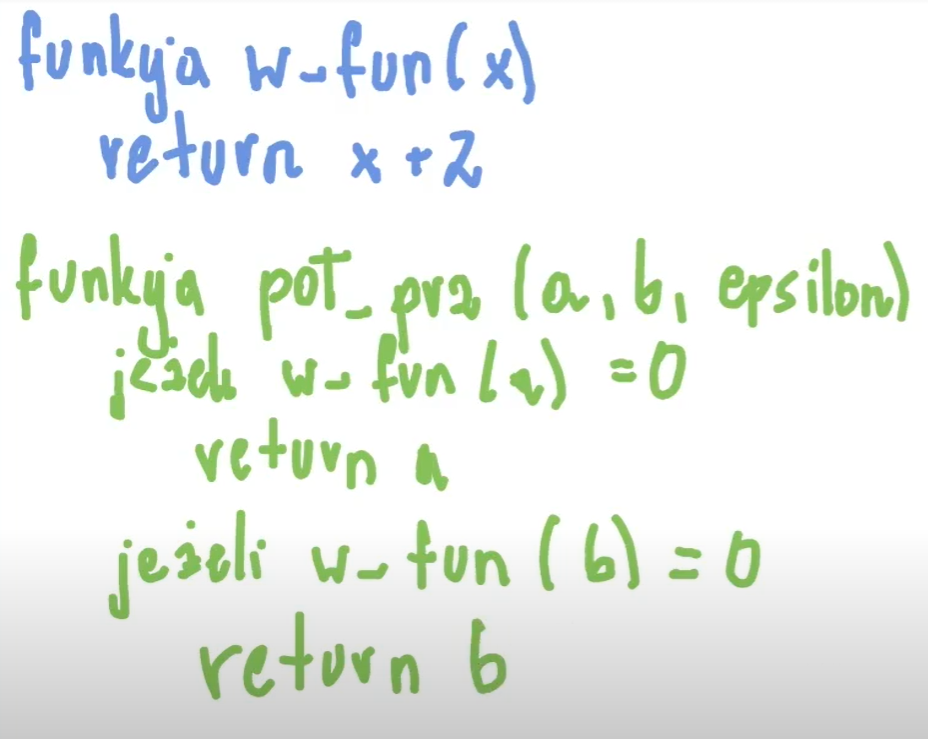 funkcja w_fun(x)
return x+2
funkcja pot_prz (a, b, epsilon)
jeżeli w_fun(a) = 0
return a
jeżeli w_fun(b) = 0
return b